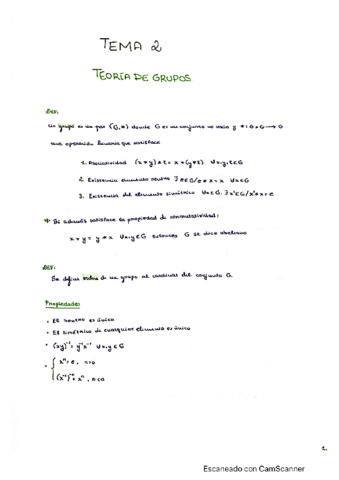 TEMA 2
TEORÍA DE GRUPOS
DEF:
Un grupo es un par (G,*) donde G es un conjunto no vacío y *: G×G → G
una operación binaria que satisface
1. Asociatividad (x*y)*z = x*(y*z) ∀x,y,z∈G
2. Existencia elemento neutro ∃ e∈G/e*x = x ∀x∈G
3. Existencia del elemento simétrico ∀x∈G, ∃x'∈G/x'*x = e
* Si además satisface la propiedad de conmutatividad:
x*y = y*x ∀x,y∈G entonces G se dice abeliano
DEF:
Se define orden de un grupo al cardinal del conjunto G.
Propiedades
• El neutro es único
• El simétrico de cualquier elemento es único
• (xy)⁻¹ = y⁻¹x⁻¹ ∀x,y∈G
• { xⁿ = e, n=0
(x⁻¹)⁻ⁿ = xⁿ, n<0
1.
Escaneado con CamScanner